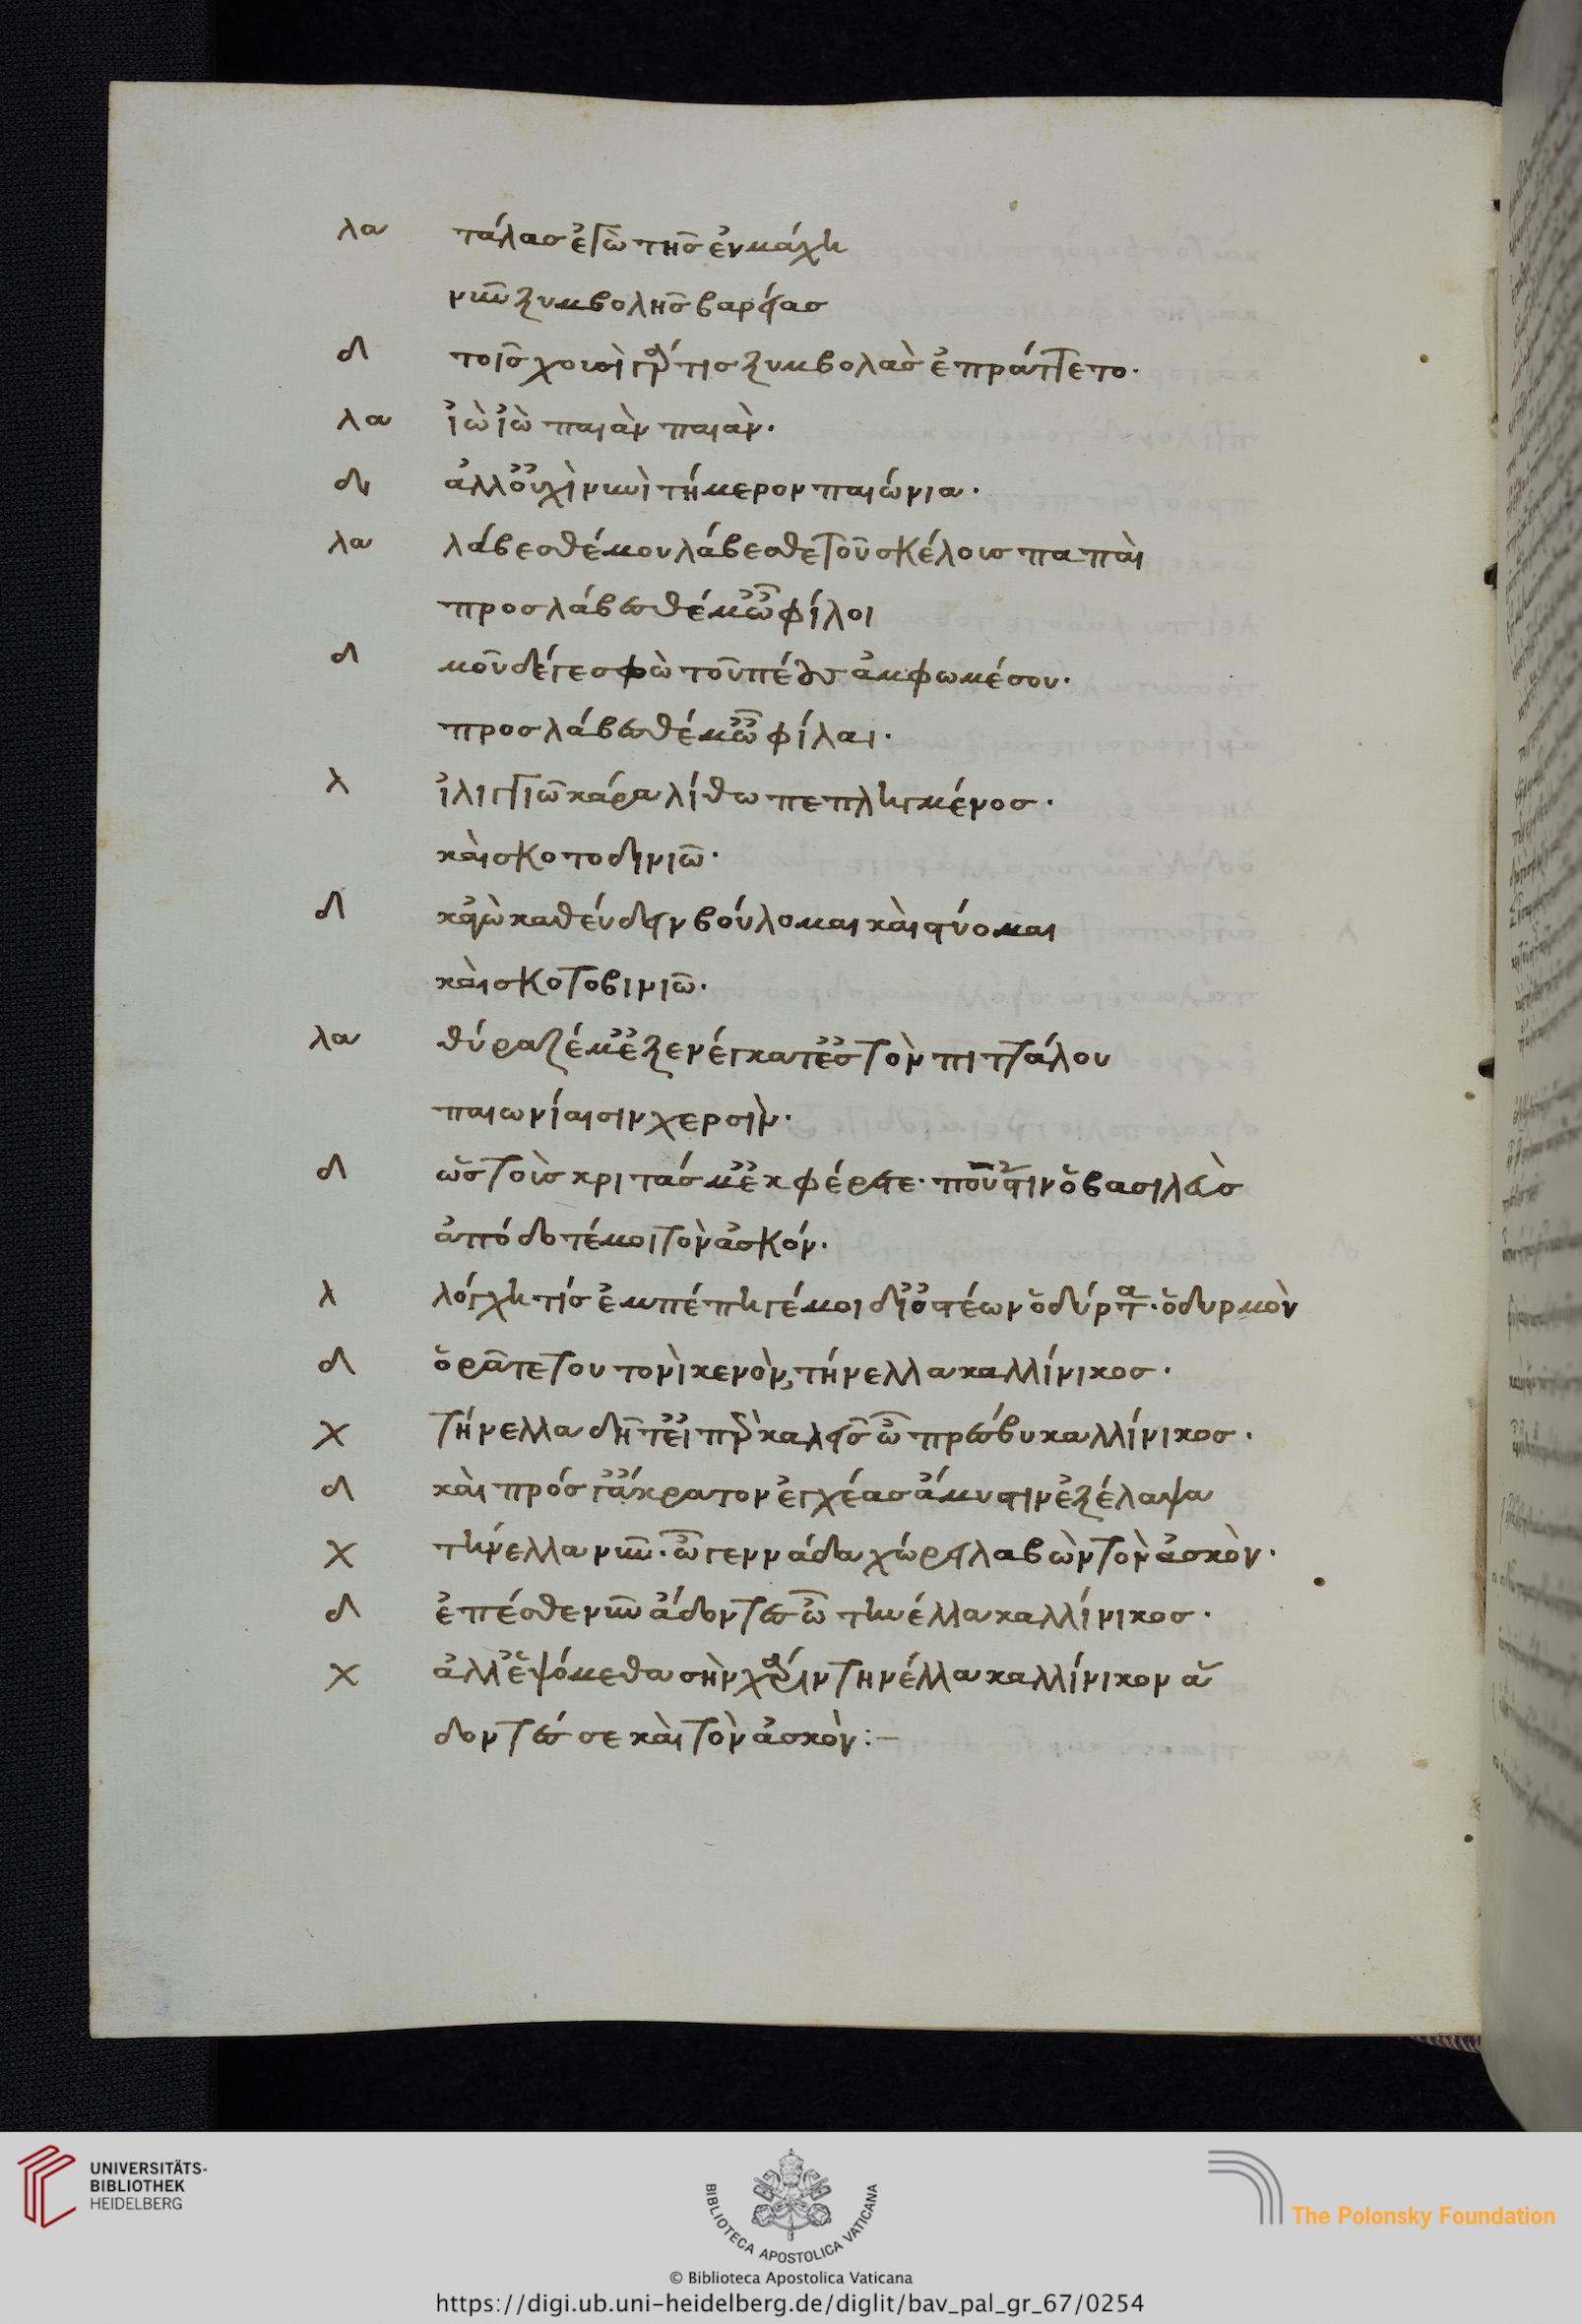 λα τάλας ἐγὼ τῆς ἐν μάχη
νῦν ξυμβολῆς βαρείας
δι τοῖς χουσὶ γάρ τις ξυμβολὰς ἐπράττετο·
λα ἰὼ ἰὼ παιὰν παιὰν·
δι ἀλλ' οὐχὶ νυνὶ τήμερον παιώνια·
λα λάβεσθέ μου λάβεσθε τοῦ σκέλους παπαὶ
προσλάβεσθέ μ' ὦ φίλοι
δι μοῦ δέ γε σφὼ τοῦ πέους ἄμφω μέσου·
προσλάβεσθέ μ' ὦ φίλαι·
λ ἰλιγγιῶ κάρα λίθω πεπληγμένος·
καὶ σκοτοδινιῶ·
δι κἀγὼ καθεύδειν βούλομαι καὶ στύομαι
καὶ σκοτοβινιῶ·
λα θύραζέ μ' ἐξενέγκατ' ἐς τὸν πιττάλου
παιωνίαισιν χερσὶν·
δι ὡς τοὺς κριτάς μ' ἐκφέρετε· ποῦ 'στιν ὁ βασιλεὺς
ἀπόδοτέ μοι τὸν ἀσκόν·
λ λόγχη τίς ἐμπέπηγέ μοι δι' ὀστέων ὀδύρτα· ὀδυρμὸν
δι ὁρᾶτε τουτονὶ κενὸν, τήνελλα καλλίνικος·
χ τήνελλα δῆτ' εἴπερ καλεῖς ὦ πρέσβυ καλλίνικος·
δι καὶ πρός γ' ἄκρατον ἐγχέας ἄμυστιν ἐξέλαψα
χ τήνελλα νῦν· ὦ γεννάδα χώρει λαβὼν τὸν ἀσκὸν·
δι ἐπέσθε νῦν ἄδοντες ὦ τηνέλλα καλλίνικος·
χ ἀλλ' ἑψόμεθα σὴν χάριν τηνέλλα καλλίνικον ἅ
δοντές σε καὶ τὸν ἀσκὸν:–
UNIVERSITÄTS-
BIBLIOTHEK
HEIDELBERG
BIBLIOTECA APOSTOLICA VATICANA
The Polonsky Foundation
© Biblioteca Apostolica Vaticana
https://digi.ub.uni-heidelberg.de/diglit/bav_pal_gr_67/0254